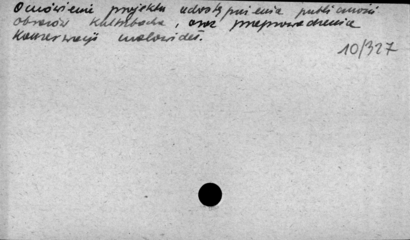 Omówienie projektu udostępnienia publiczności
obrazów Kaltenbacha, oraz przeprowadzenia
konserwacji malowideł.
10/327